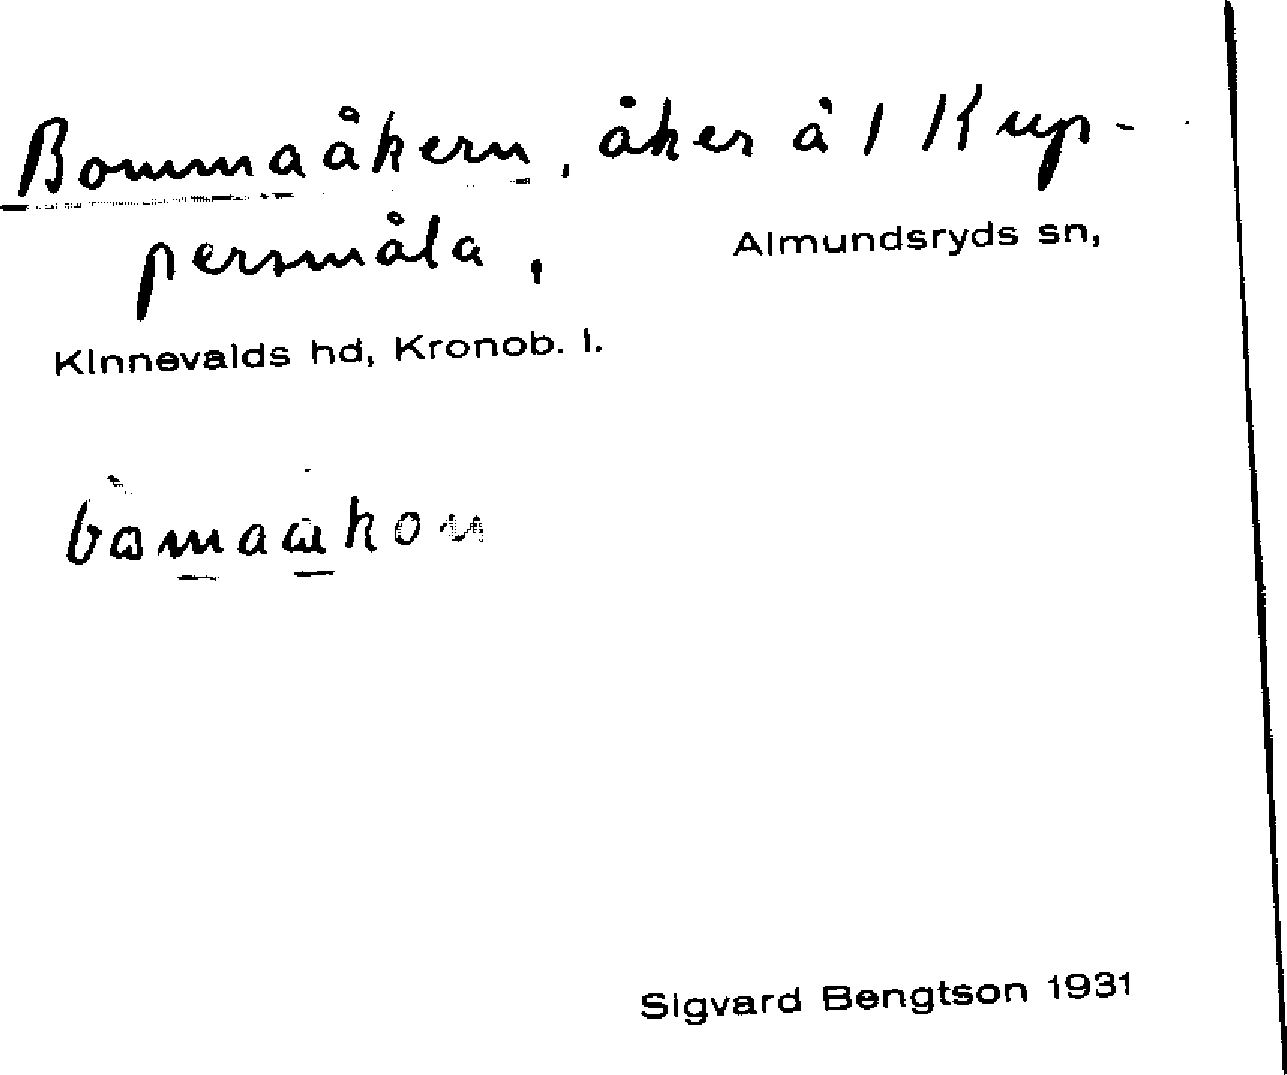 Bommaåkern, åker å 1 Kup-
persmåla, Almundsryds sn,
Kinnevalds hd, Kronob. l.
Sigvard Bengtson 1931